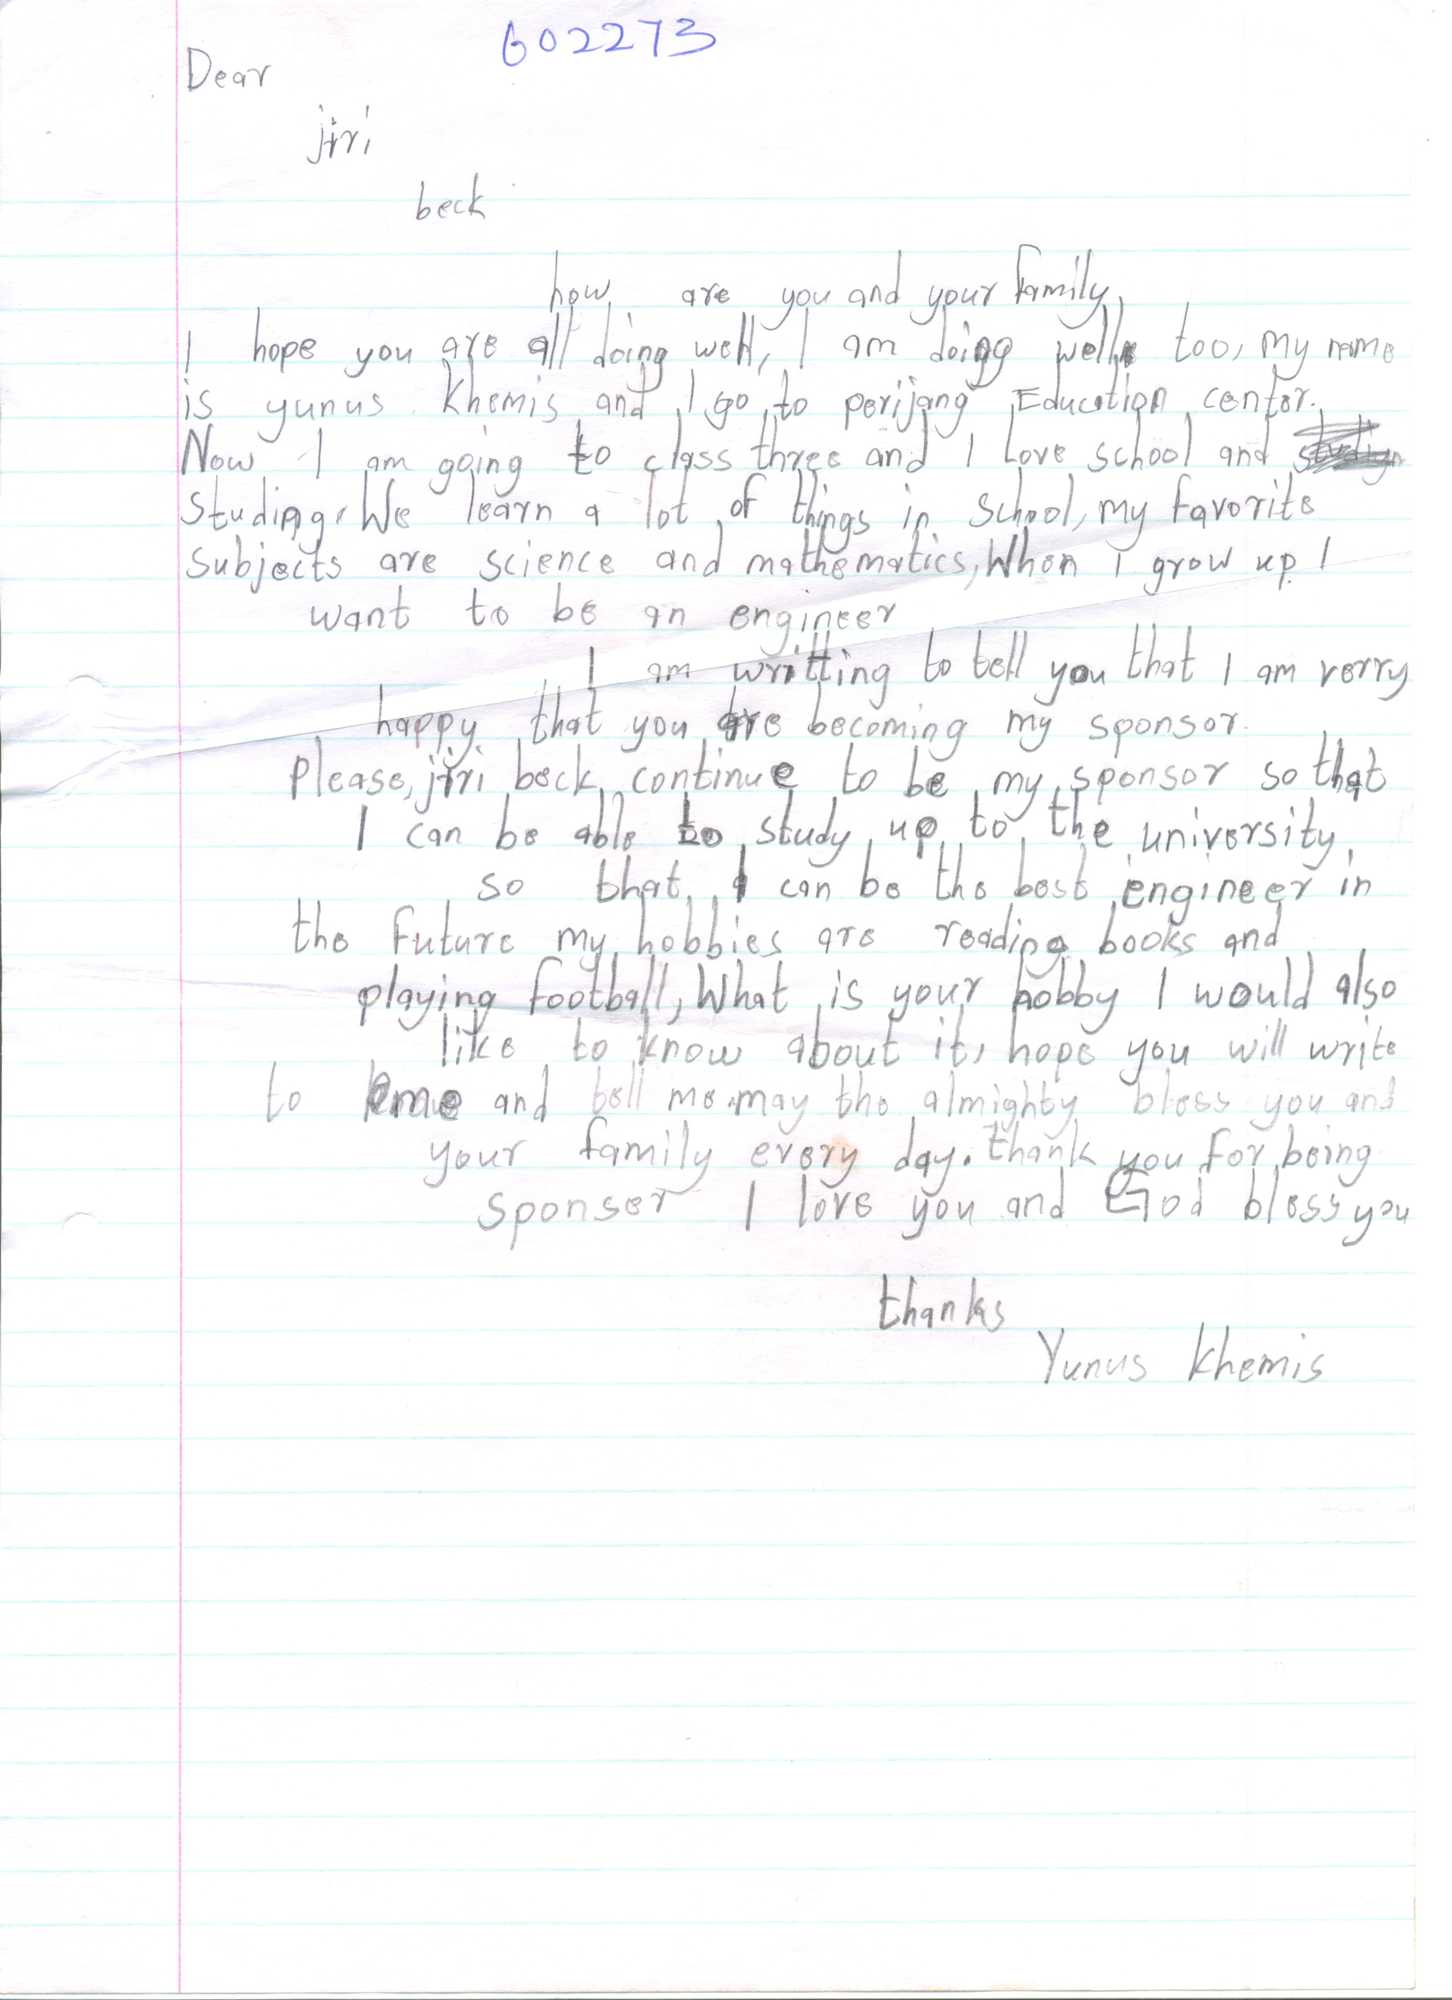 602273
Dear
jiri
beck
how are you and your family,
I hope you are all doing well, I am doing well too, my name
is yunus khemis and I go to perijang Education center.
Now I am going to class three and I love school and
studing, We learn a lot of things in school, my favorite
subjects are science and mathematics, When I grow up I
want to be an engineer
I am writting to tell you that I am verry
happy that you are becoming my sponsor.
please, jiri beck continue to be my sponsor so that
I can be able to study up to the university,
so that I can be the best engineer in
the future my hobbies are reading books and
playing football, What is your hobby I would also
like to know about it, hope you will write
to me and tell me. may the almighty bless you and
your family every day. thank you for being
sponser I love you and God bless you
thanks
Yunus khemis